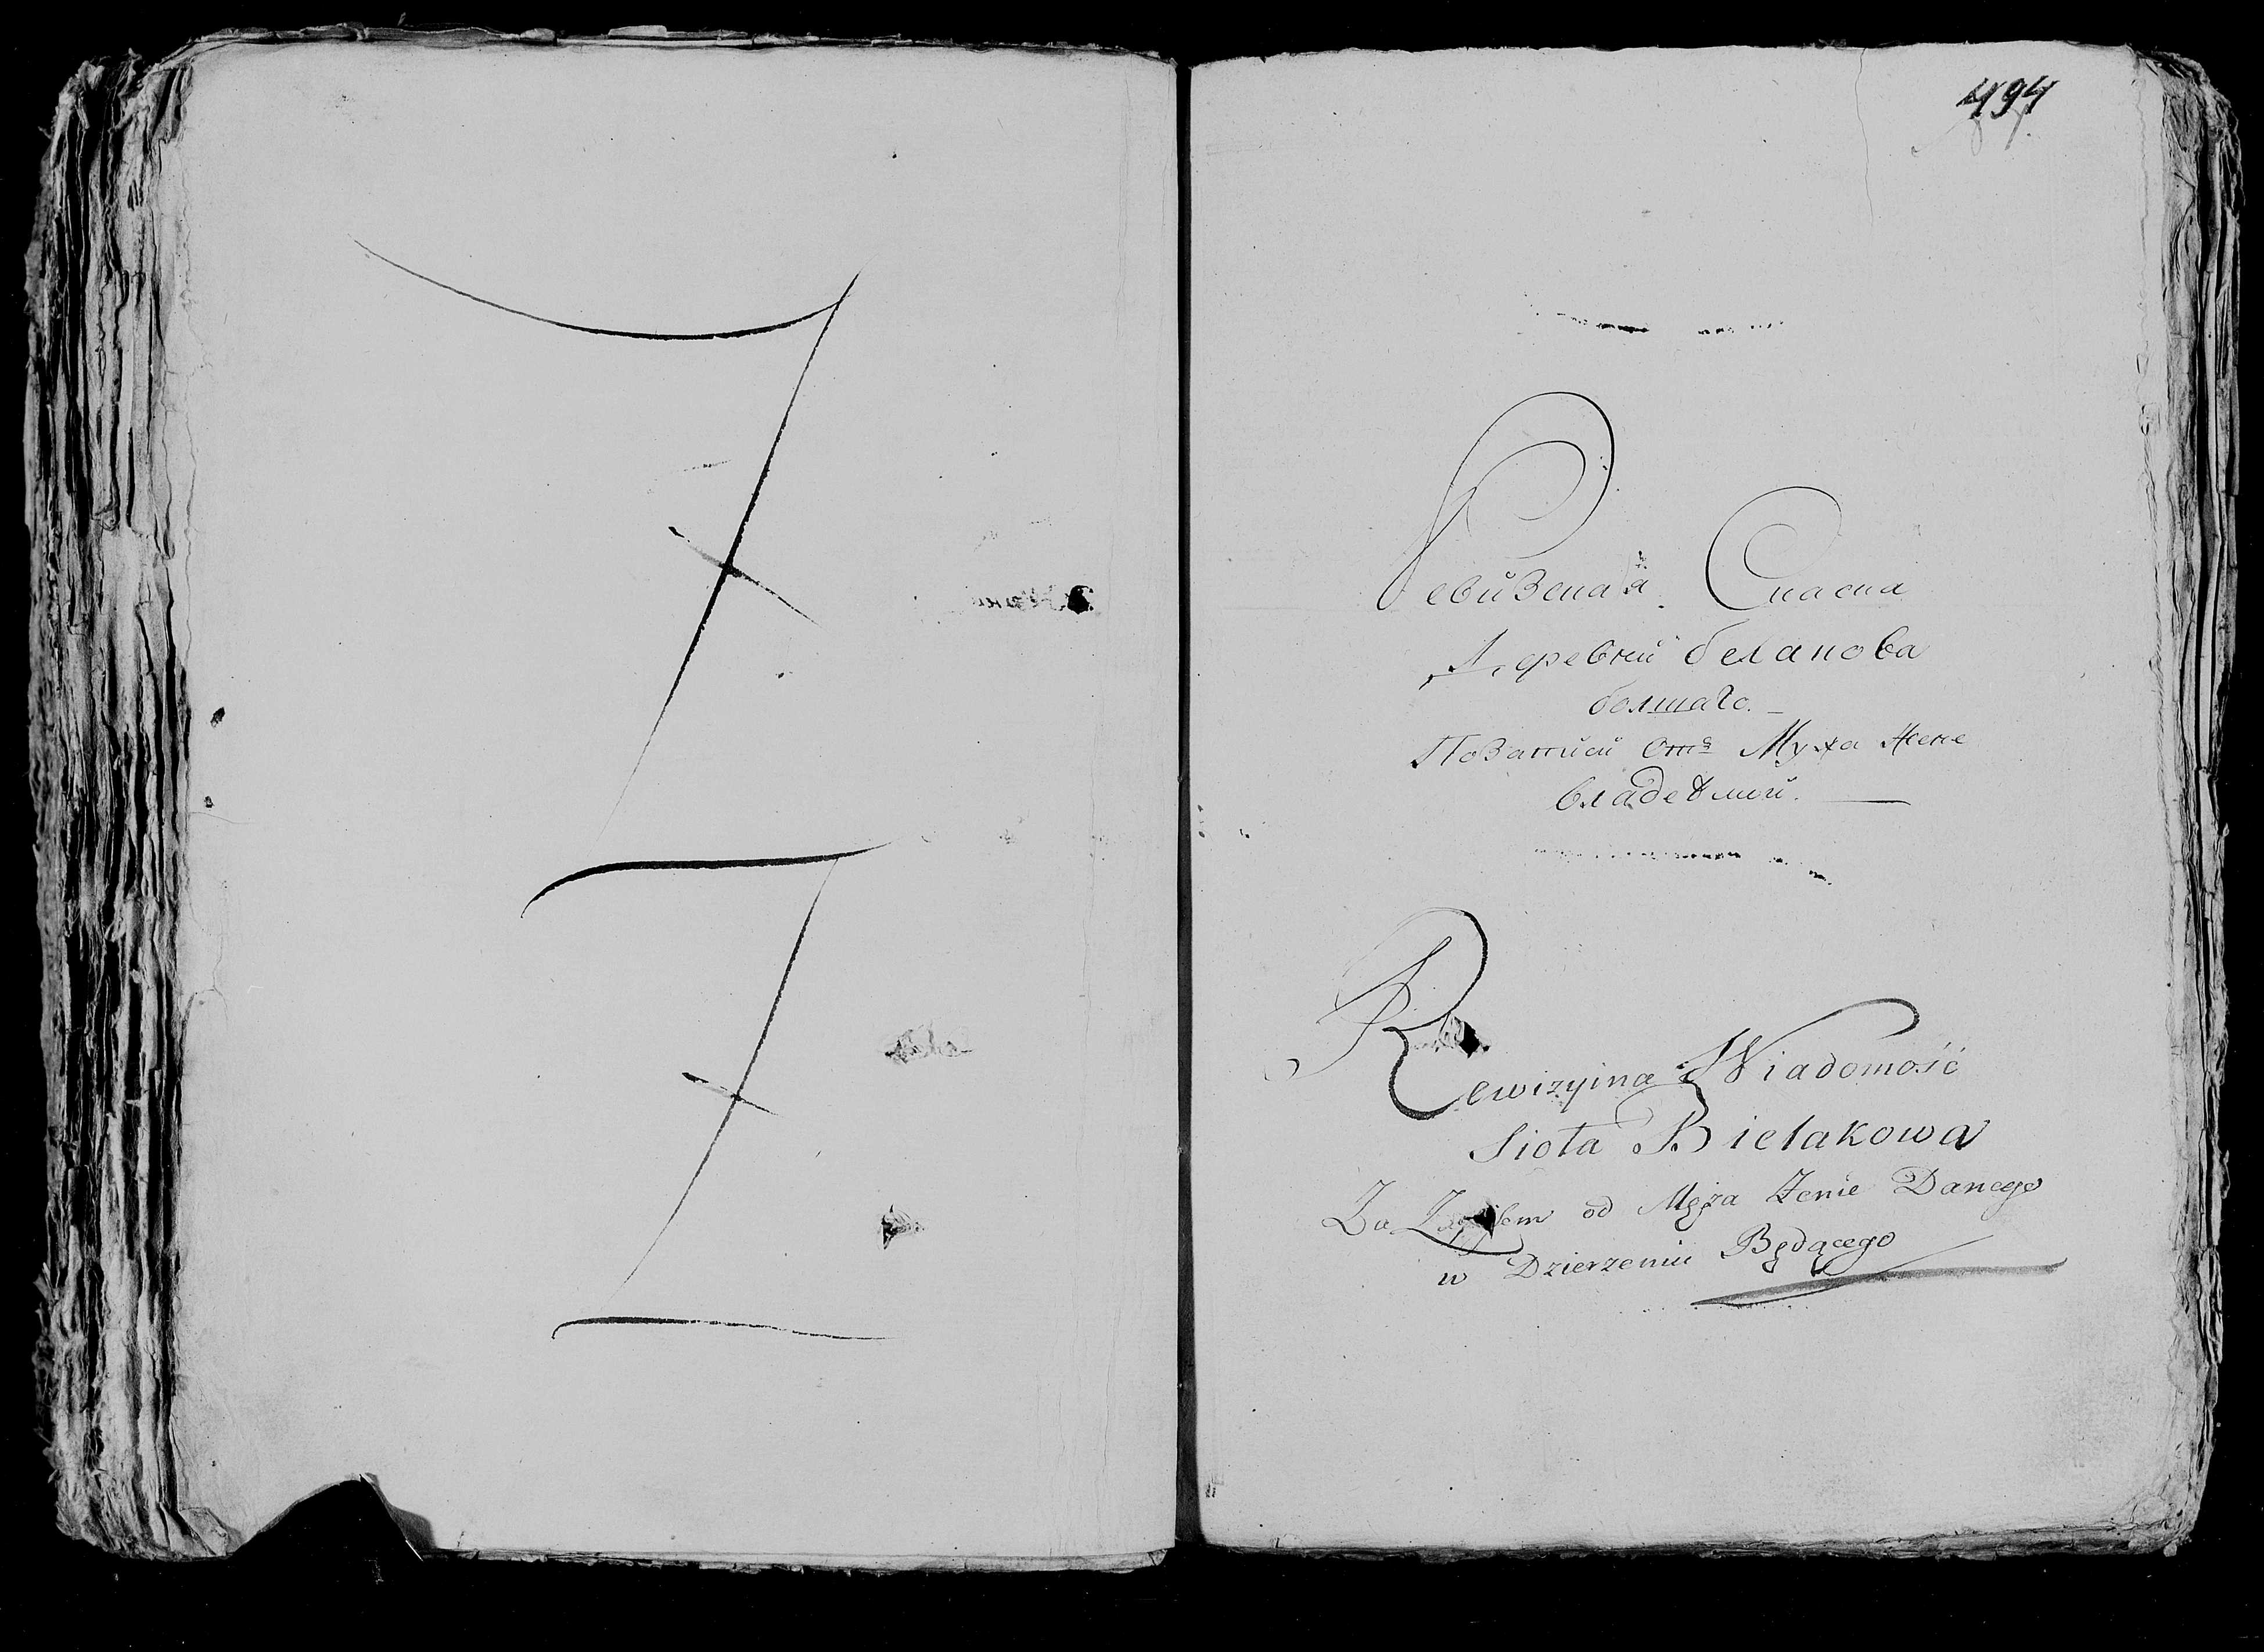 494
Ревизская Сказка
Деревни белакова
болшаго.
По Записи Отъ Мужа Жене
владеемой.
Rewizyina Wiadomość
Siola Bielakowa
Za Zapisem od Męża Żenie Danego
w Dzierzeniu Będącego